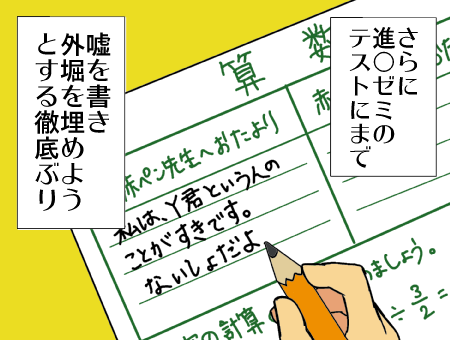 さらに
進〇ゼミの
テストにまで
嘘を書き
外堀を埋めよう
とする徹底ぶり
算数
赤ペン先生へおたより
私は、Y君という人の
ことがすきです。
ないしょだよ
の計算
めましょう。
÷ 3/2 =